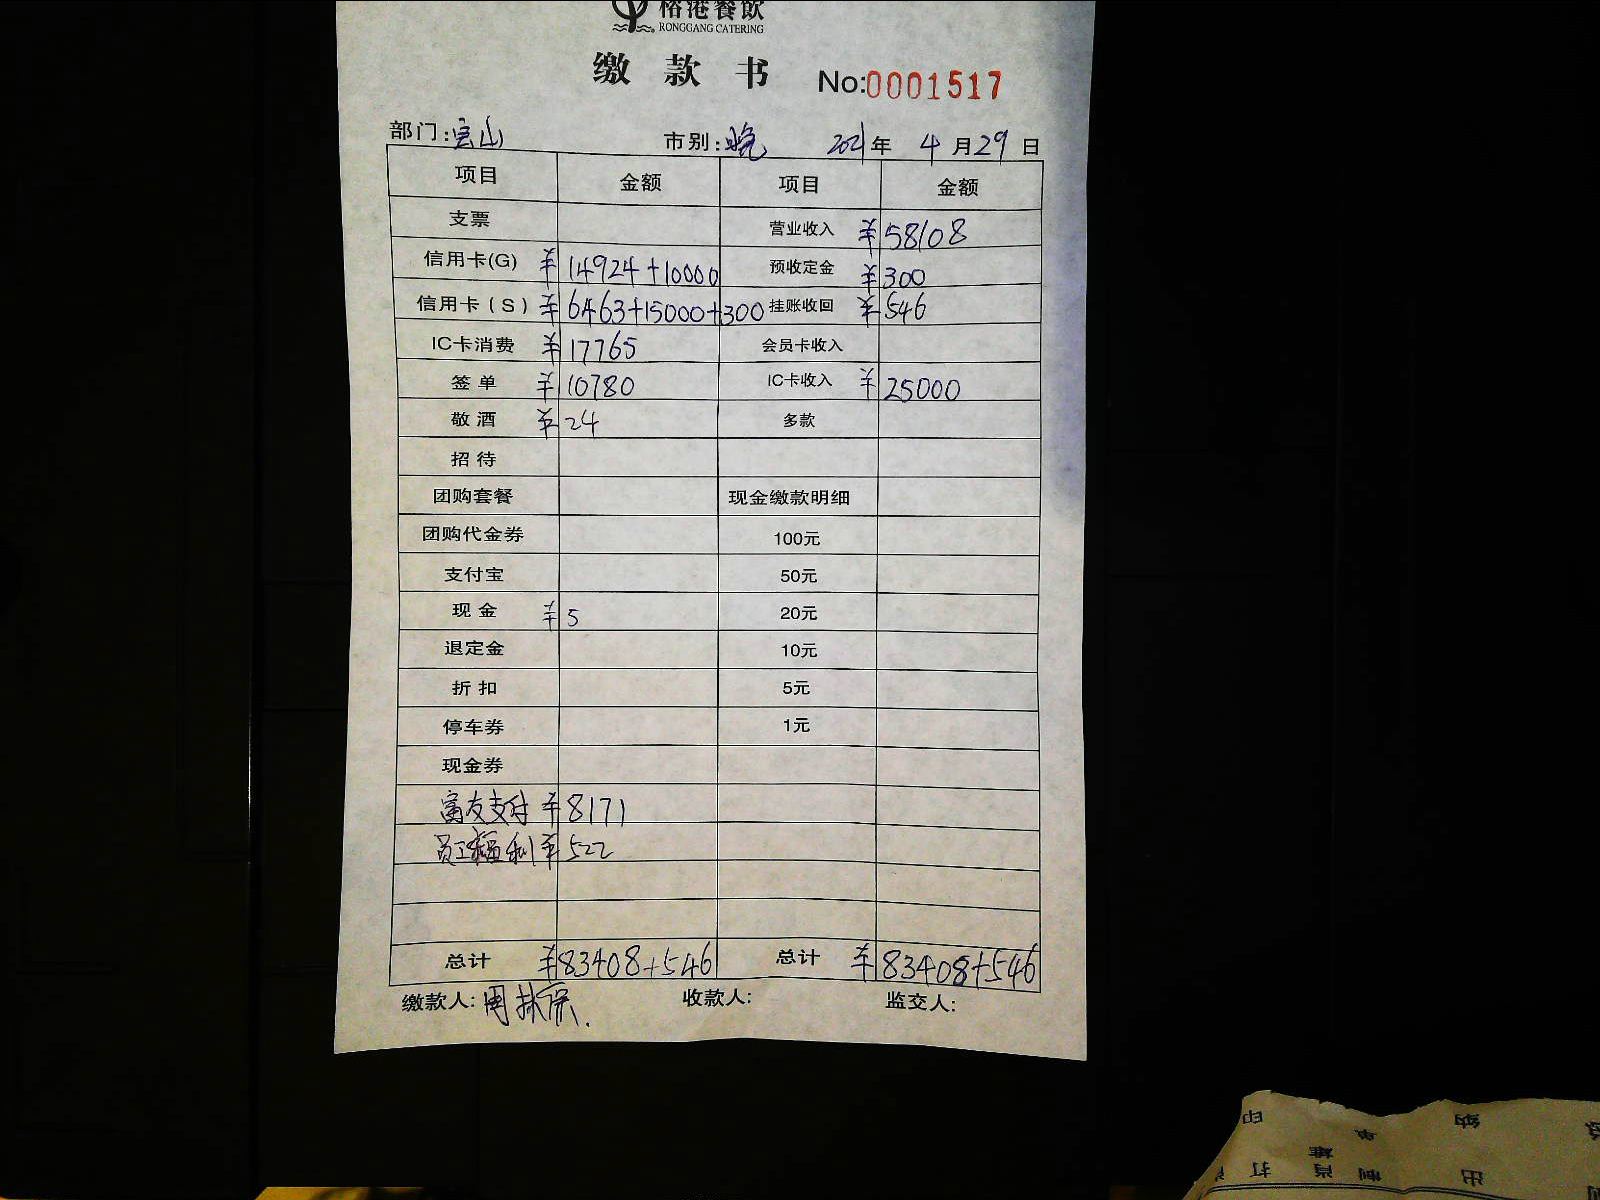 榕港餐饮
RONGGANG CATERING
缴 款 书 No:0001517
部门:宝山 市别:晚 2021年 4月29日
项目 金额 项目 金额
支票 营业收入 ¥58108
信用卡(G) ¥14924+10000 预收定金 ¥300
信用卡(S) ¥6463+15000+300 挂账收回 ¥546
IC卡消费 ¥17765 会员卡收入
签单 ¥10780 IC卡收入 ¥25000
敬酒 ¥24 多款
招待
团购套餐 现金缴款明细
团购代金券 100元
支付宝 50元
现金 ¥5 20元
退定金 10元
折扣 5元
停车券 1元
现金券
富友支付 ¥8171
员工福利 ¥522
总计 ¥83408+546 总计 ¥83408+546
缴款人:周 收款人: 监交人: